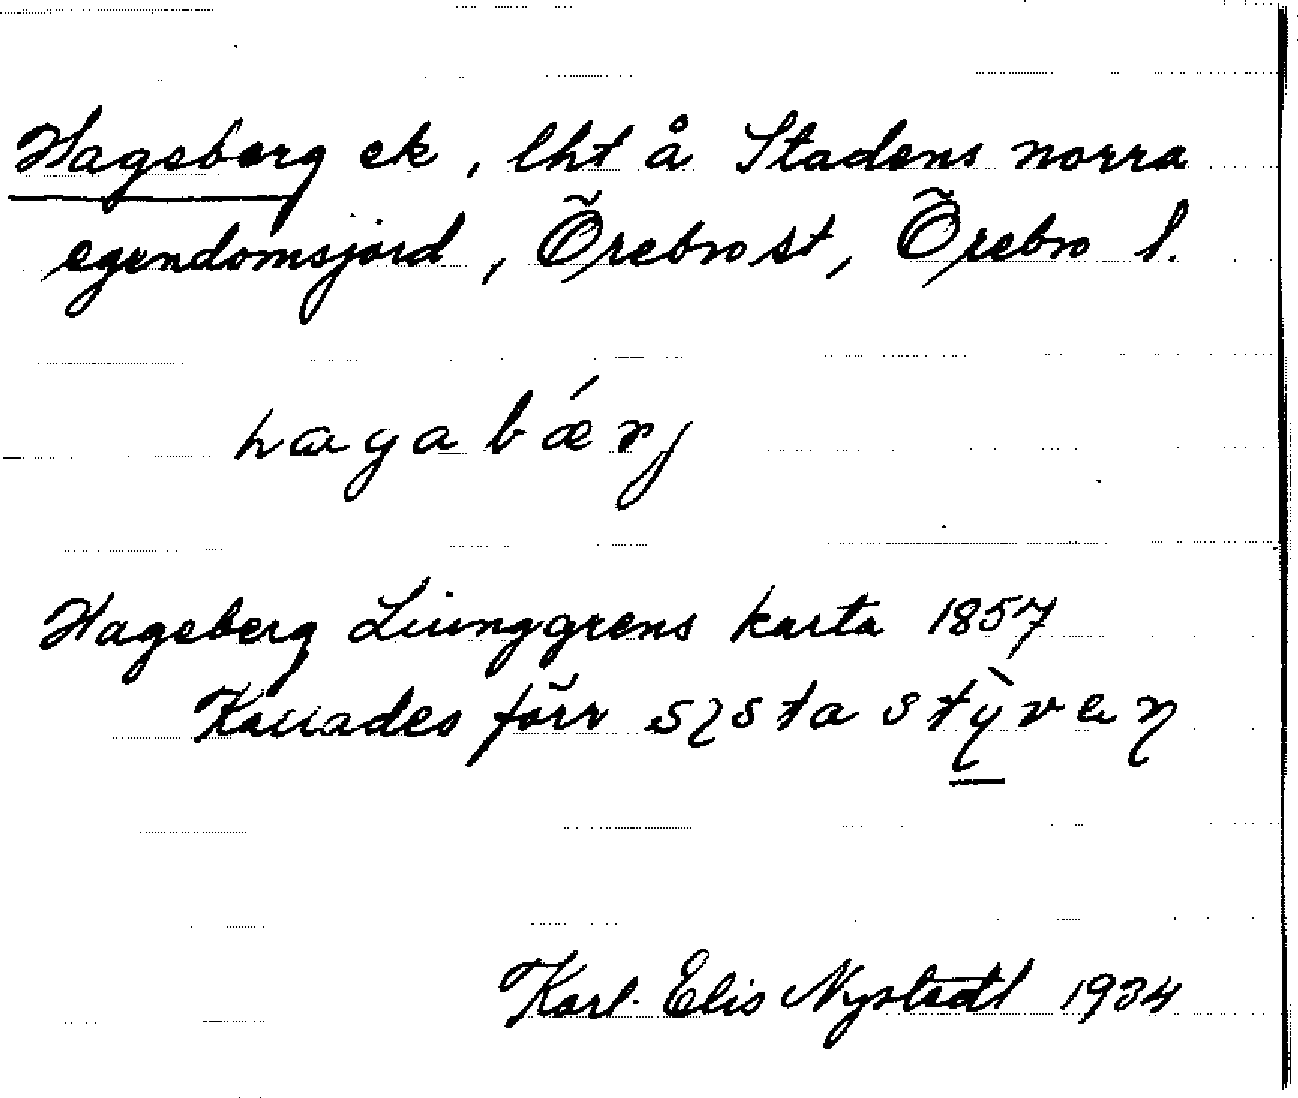 Hageberg ek, lht å Stadens norra
egendomsjord, Örebro st, Örebro l.
hagabǽrj
Hageberg Liunggrens karta 1857
Kallades förr sɩsta stỳvan
Karl-Elis Nystedt 1934